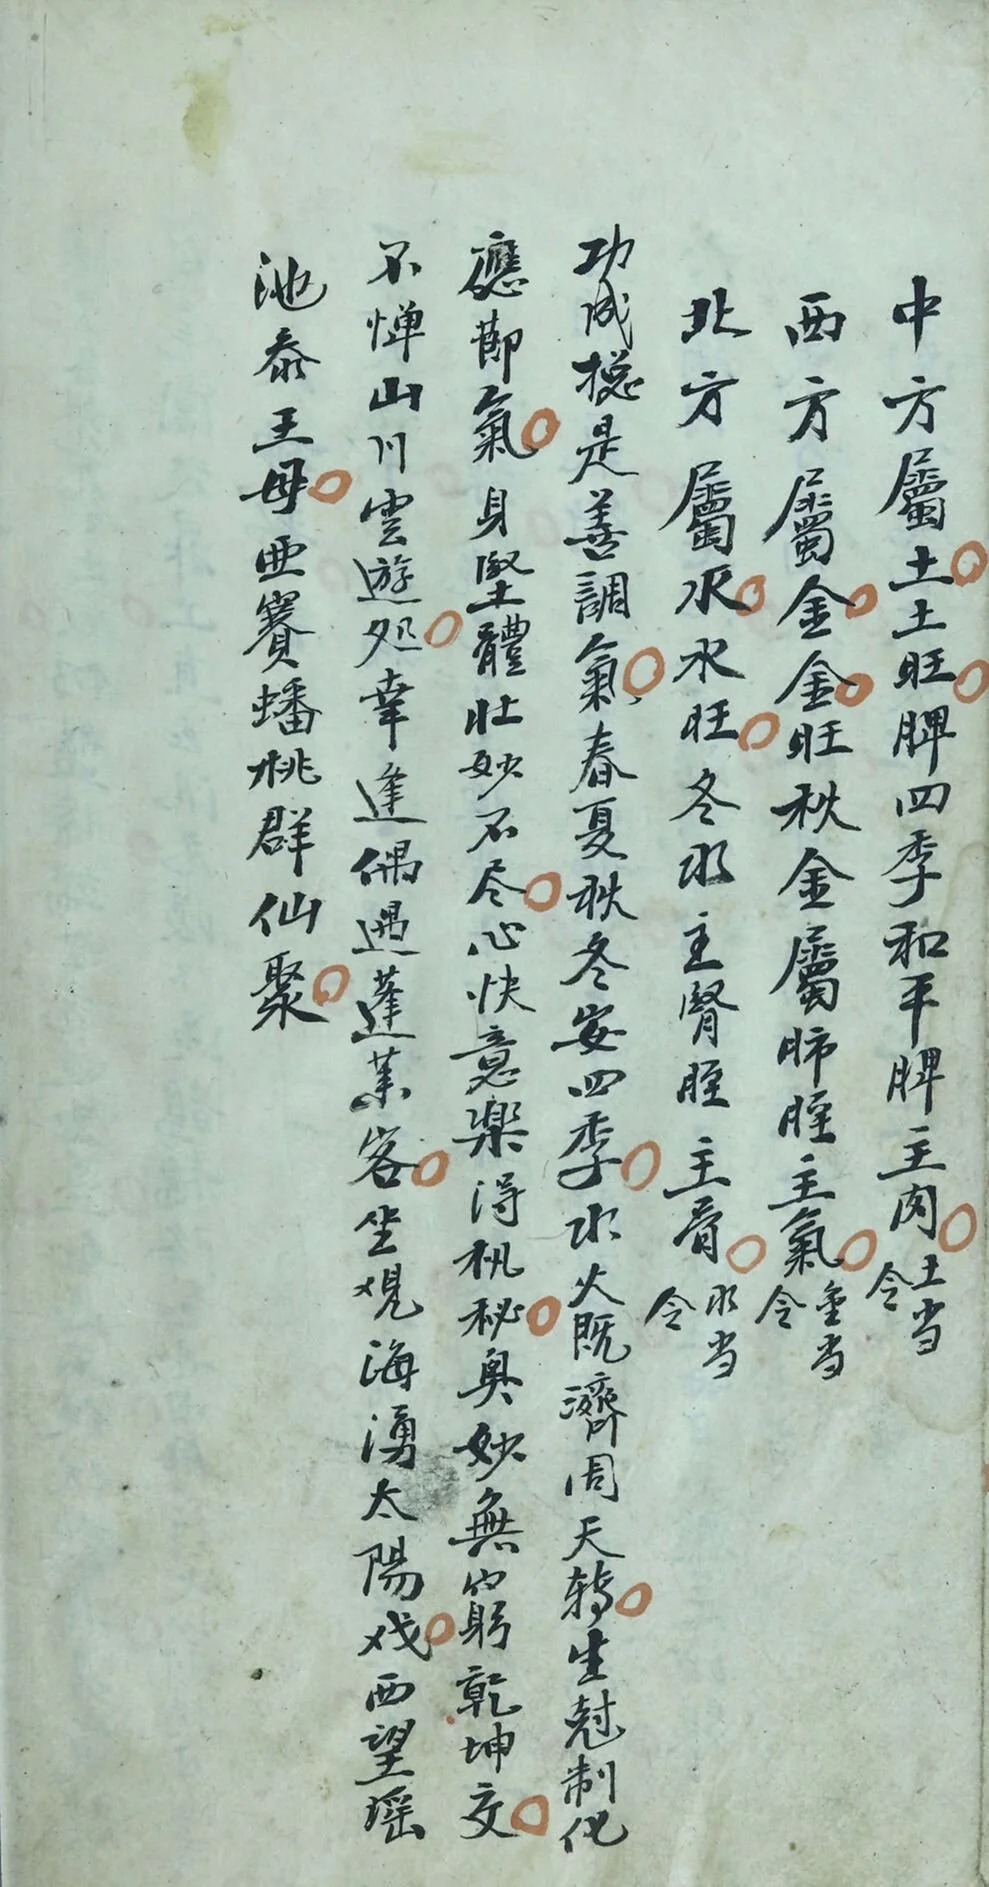 中方屬土土旺脾四季和平脾主肉土当令
西方屬金金旺秋金屬肺腟主氣金当令
北方屬水水旺冬水主腎腟主骨水当令
功成揔是善調氣春夏秋冬安四季水火既濟周天轉生尅制化
應節氣身堅體壯妙不尽心快意樂得秘奥妙無窮乾坤交
不惮山川雲遊処幸逢偶遇蓬莱客坐观海湧太陽戏西望瑶
池泰王母亜賽蟠桃群仙聚